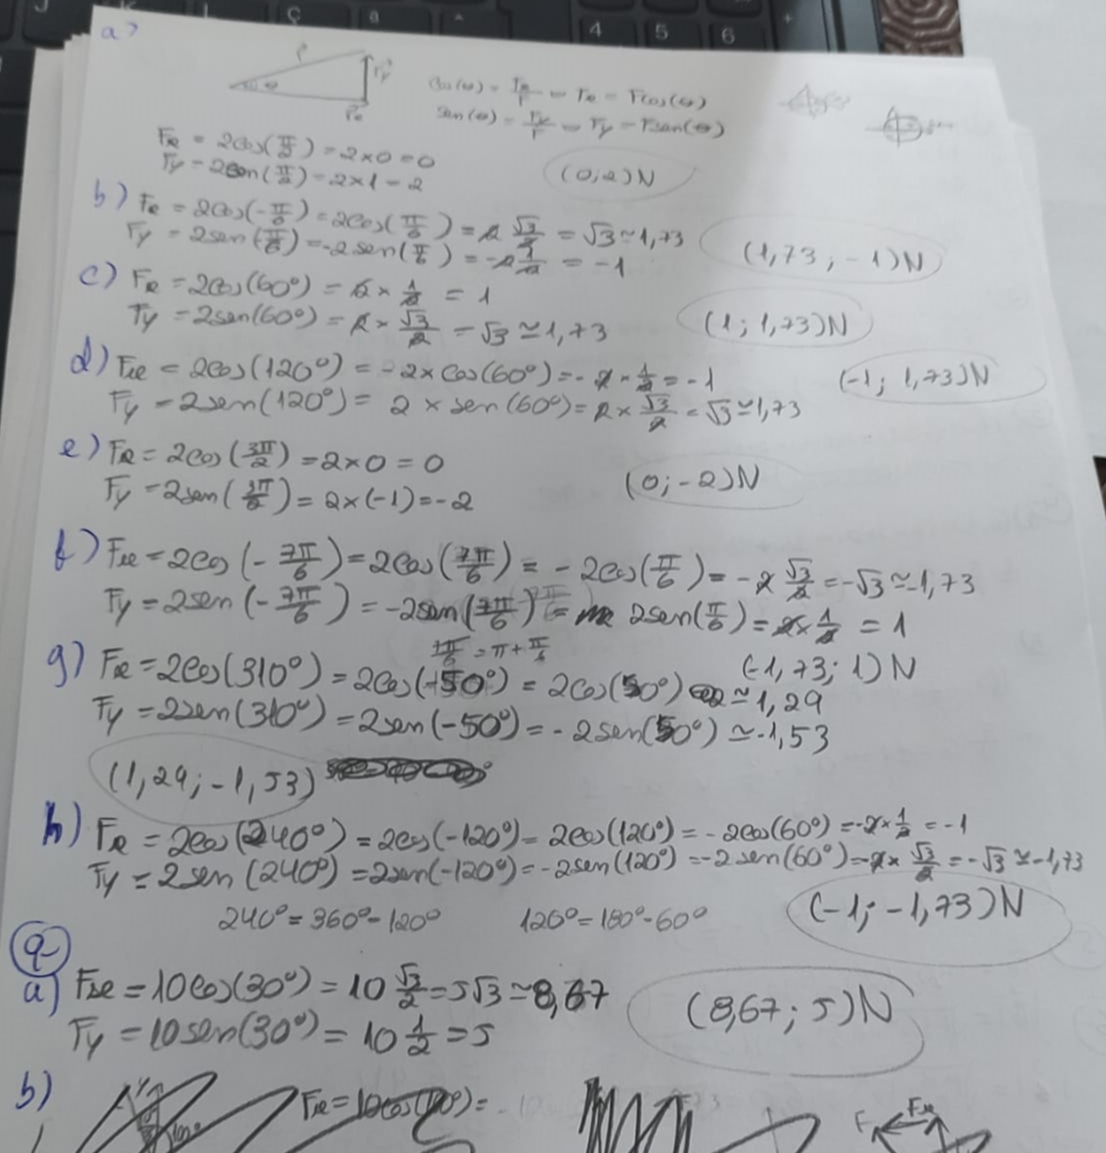 a)
F
Fy
θ
Fx
Cos(θ) = Fx/F → Fx = Fcos(θ)
Sen(θ) = Fy/F → Fy = Fsen(θ)
Fx = 2cos(π/2) = 2x0 = 0
Fy = 2sen(π/2) = 2x1 = 2
(0;2)N
b) Fx = 2cos(-π/6) = 2cos(π/6) = 2 √3/2 = √3 ≃ 1,73
Fy = 2sen(-π/6) = -2sen(π/6) = -2 1/2 = -1
(1,73; -1)N
c) Fx = 2cos(60º) = 2 x 1/2 = 1
Fy = 2sen(60º) = 2 x √3/2 = √3 ≃ 1,73
(1; 1,73)N
d) Fx = 2cos(120º) = -2xcos(60º) = -2 x 1/2 = -1
Fy = 2sen(120º) = 2 x sen(60º) = 2 x √3/2 = √3 ≃ 1,73
(-1; 1,73)N
e) Fx = 2cos(3π/2) = 2x0 = 0
Fy = 2sen(3π/2) = 2x(-1) = -2
(0; -2)N
f) Fx = 2cos(-7π/6) = 2cos(7π/6) = -2cos(π/6) = -2 √3/2 = -√3 ≃ 1,73
Fy = 2sen(-7π/6) = -2sen(7π/6) = 2sen(π/6) = 2x 1/2 = 1
7π/6 = π + π/6
(-1,73; 1)N
g) Fx = 2cos(310º) = 2cos(-50º) = 2cos(50º) ≃ 1,29
Fy = 2sen(310º) = 2sen(-50º) = -2sen(50º) ≃ -1,53
(1,29; -1,53)
h) Fx = 2cos(240º) = 2cos(-120º) = 2cos(120º) = -2cos(60º) = -2x 1/2 = -1
Fy = 2sen(240º) = 2sen(-120º) = -2sen(120º) = -2sen(60º) = -2x √3/2 = -√3 ≃ -1,73
240º = 360º - 120º
120º = 180º - 60º
(-1; -1,73)N
9-
a) Fx = 10cos(30º) = 10 √3/2 = 5√3 ≃ 8,67
Fy = 10sen(30º) = 10 1/2 = 5
(8,67; 5)N
b)
Fx
F
4
5
6
Ç